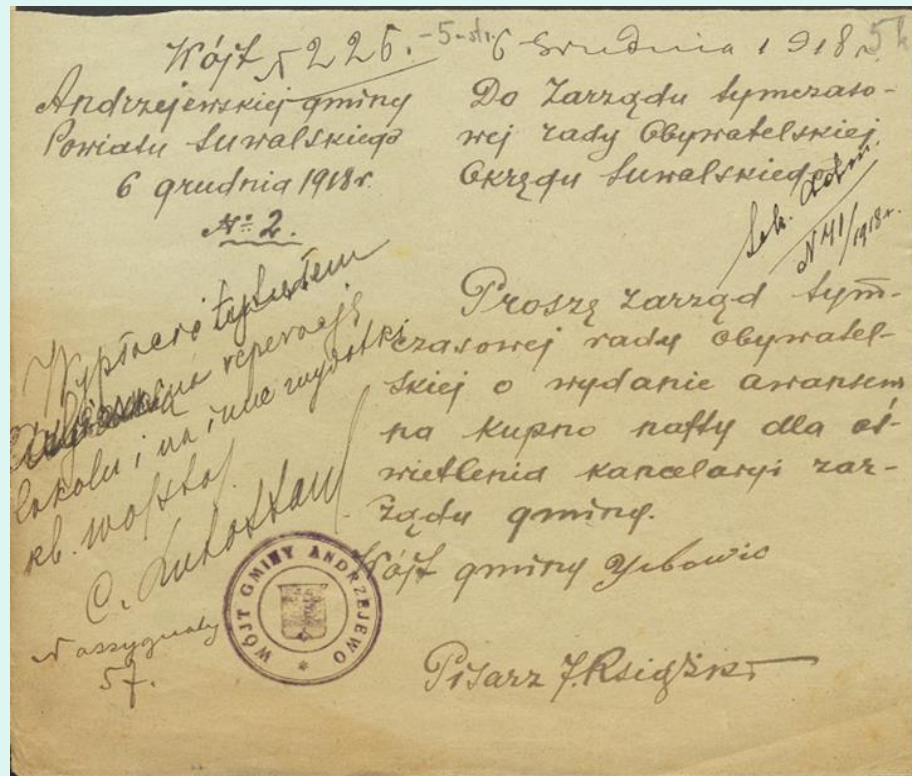 Wójt N 226. - 5-str. 6 Grudnia 1918 r. 54
Andrzejewskiej gminy
Powiatu Suwalskiego
6 grudnia 1918 r.
№ 2.
Do Zarządu tymczaso-
wej rady Obywatelskiej
Okręgu Suwalskiego.
N 41/1918 r.
Proszę zarząd tym-
czasowej rady obywatel-
skiej o wydanie awansem
na kupno nafty dla oś-
wietlenia kancelaryi zar-
ządu gminy.
Wójt gminy
Pisarz J. Książek
Wypłacić tytułem
na reperację
lokalu i na inne wydatki
rb.
N assygnaty
57.
WÓJT GMINY ANDRZEJEWO